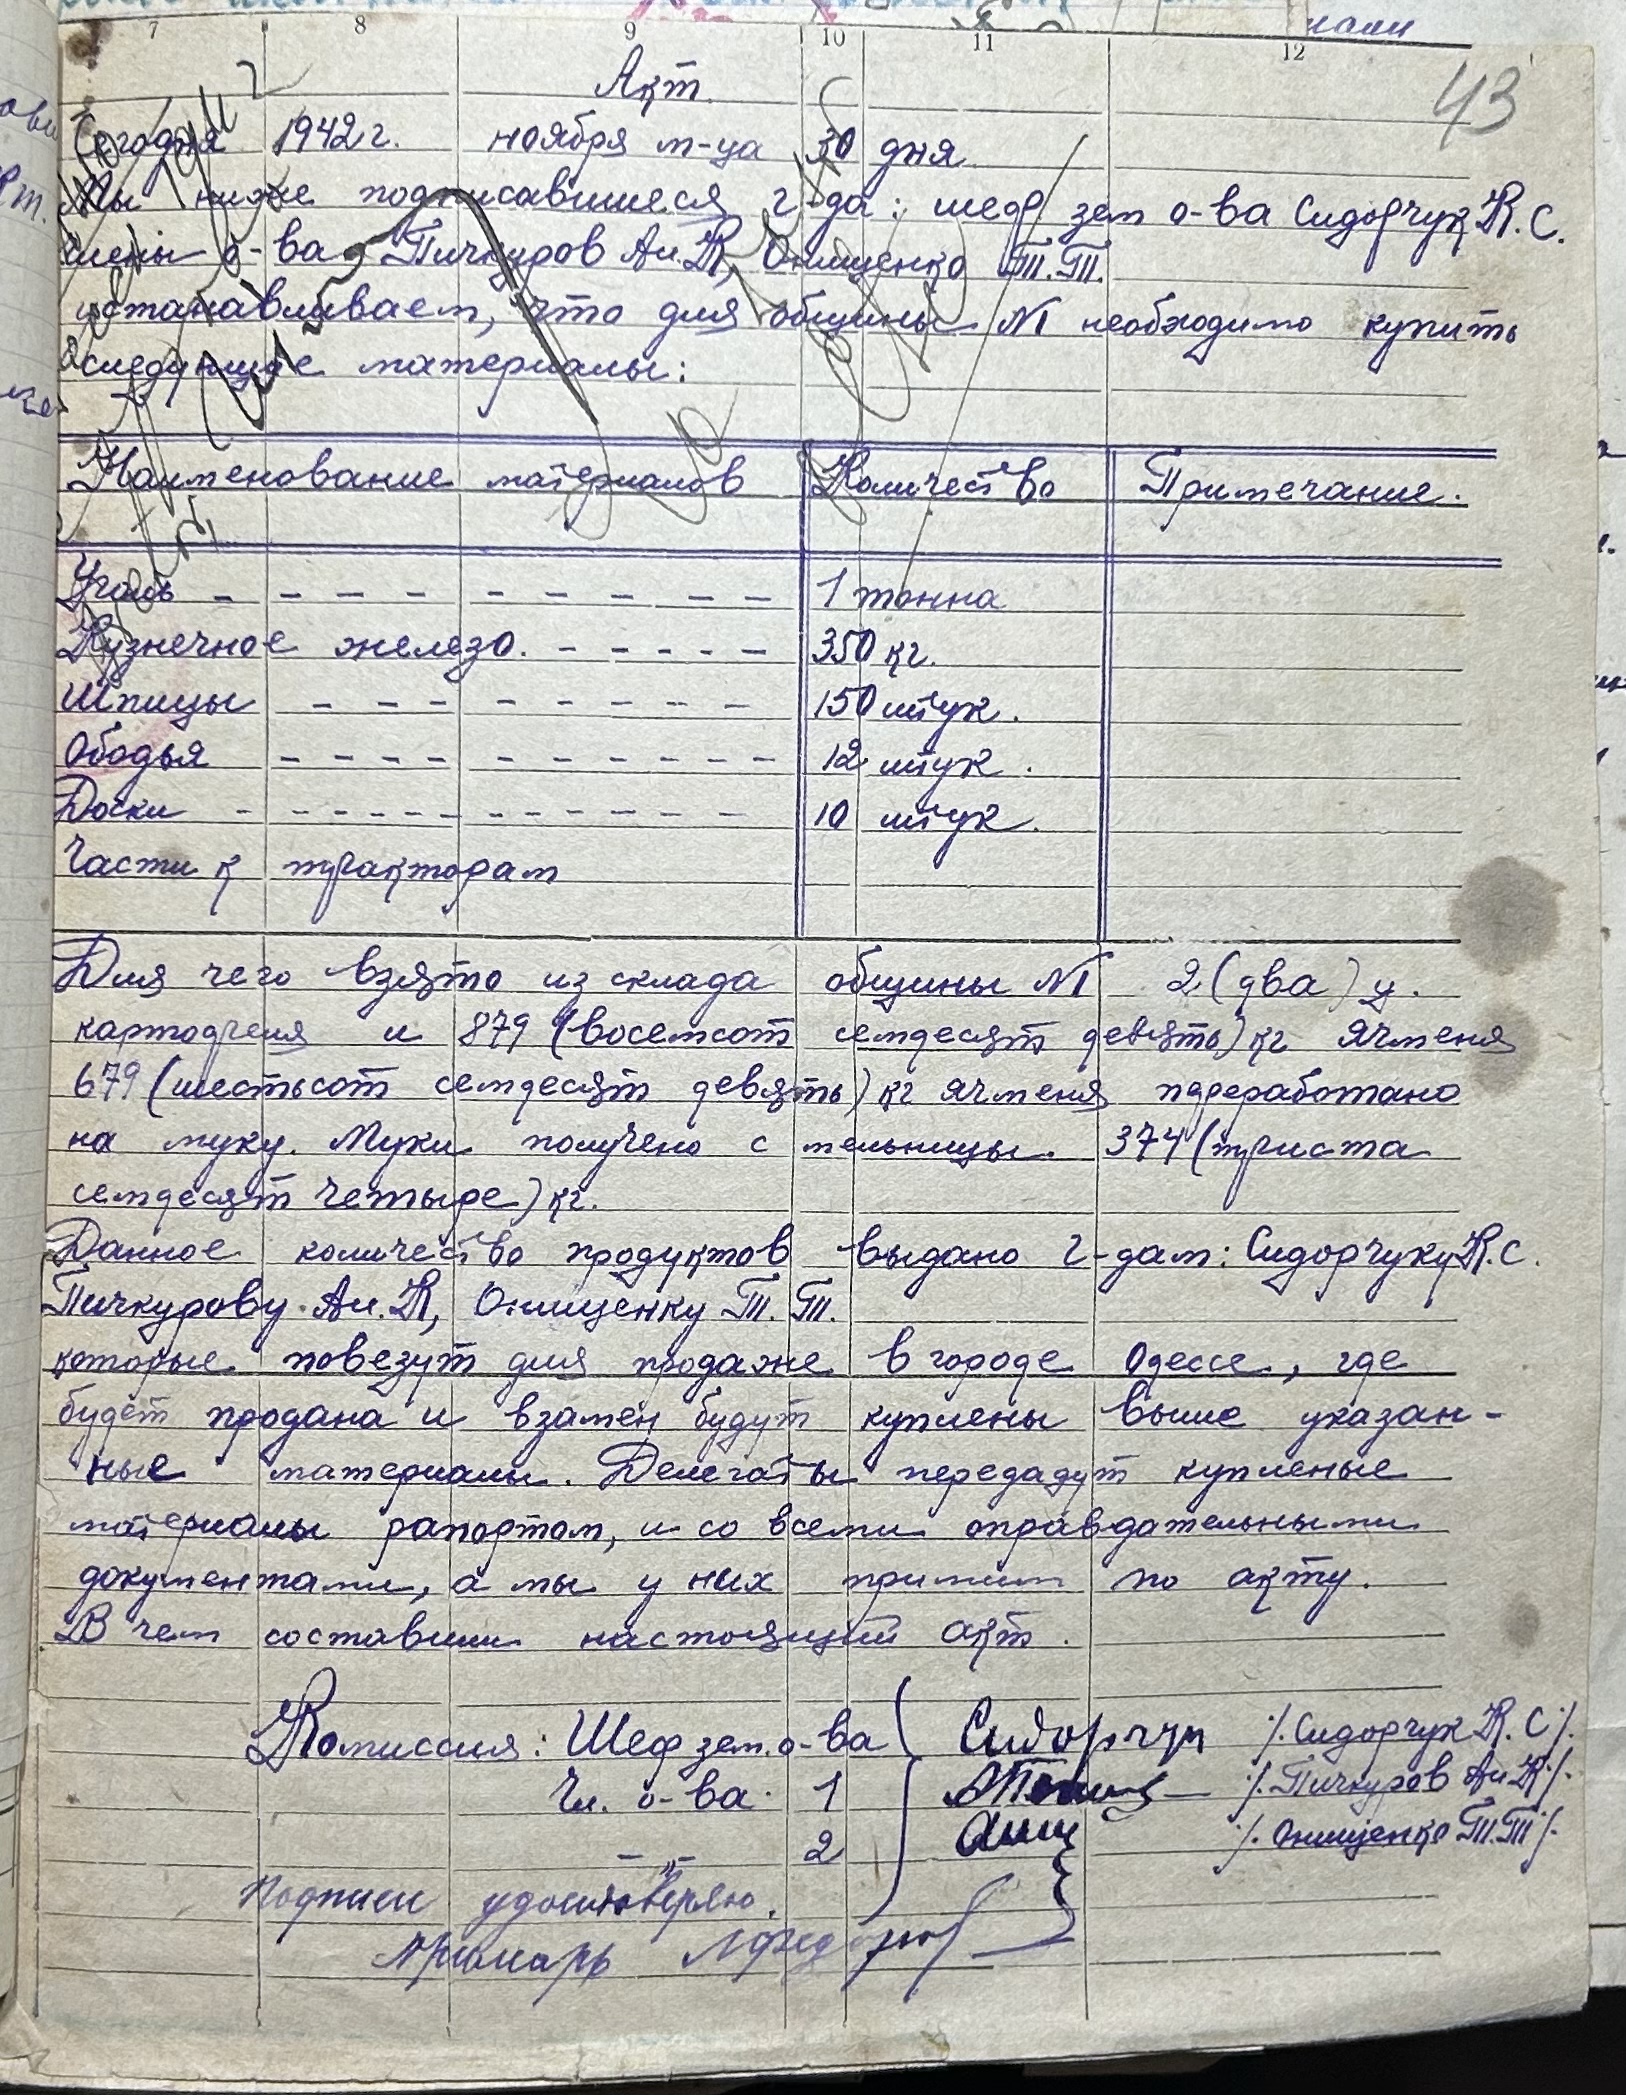 7 8 9 10 11 12
43
Акт
Сегодня 1942 г. ноября м-ца 30 дня
Мы ниже подписавшиеся г-да: шеф зем о-ва Сидорчук К. С.
члены о-ва Пичкуров Ан. К, Онищенко П. П.
устанавливаем, что для общины № необходимо купить
следующие материалы:
Наименование материалов Количество Примечание.
Уголь - - - - - - - - - - 1 тонна
Кузнечное железо. - - - - - 350 кг.
Шпицы - - - - - - - - - 150 штук.
Ободья - - - - - - - - - - 12 штук.
Доски - - - - - - - - - - - 10 штук.
Части к тракторам
Для чего взято из склада общины № 2 (два) ц.
картофеля и 879 (восемсот семдесят девять) кг ячменя
679 (шестьсот семдесят девять) кг ячменя переработано
на муку. Муки получено с мельницы 374 (триста
семдесят четыре) кг.
Данное количество продуктов выдано г-дам: Сидорчуку К. С.
Пичкурову Ан. К, Онищенку П. П.
которые повезут для продажи в городе Одессе, где
будет продана и взамен будут куплены выше указан-
ные материалы. Делегаты передадут купленые
материалы рапортом, и со всеми оправдательными
документами, а мы у них примим по акту.
В чем составили настоящий акт.
Комиссия: Шеф зем. о-ва Сидорчук /. Сидорчук К. С ./
Чл. о-ва 1 /. Пичкуров Ан К ./
—"— 2 Онищ /. Онищенко П. П ./
Подписи удостоверяю.
Примарь